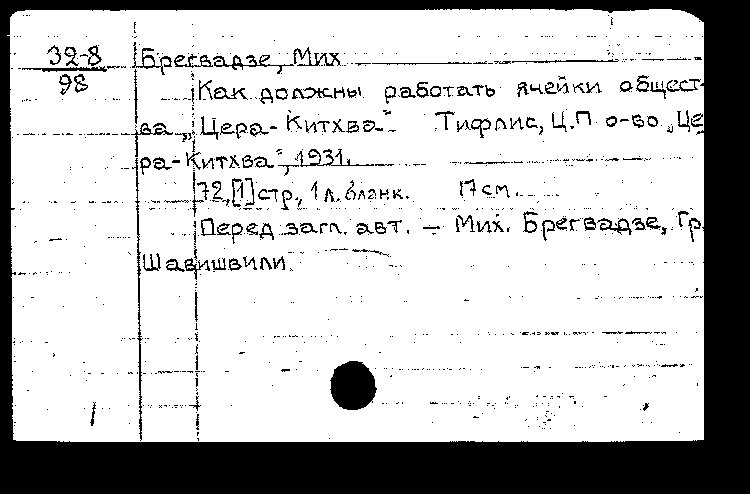 32-8
98
Брегвадзе, Мих
Как должны работать ячейки общест-
ва „Цера-Китхва". Тифлис, Ц.П. о-во „Це
ра-Китхва", 1931.
72,[1] стр., 1 л. бланк. 17 см.
Перед загл. авт. — Мих. Брегвадзе, Гр.
Шавишвили.